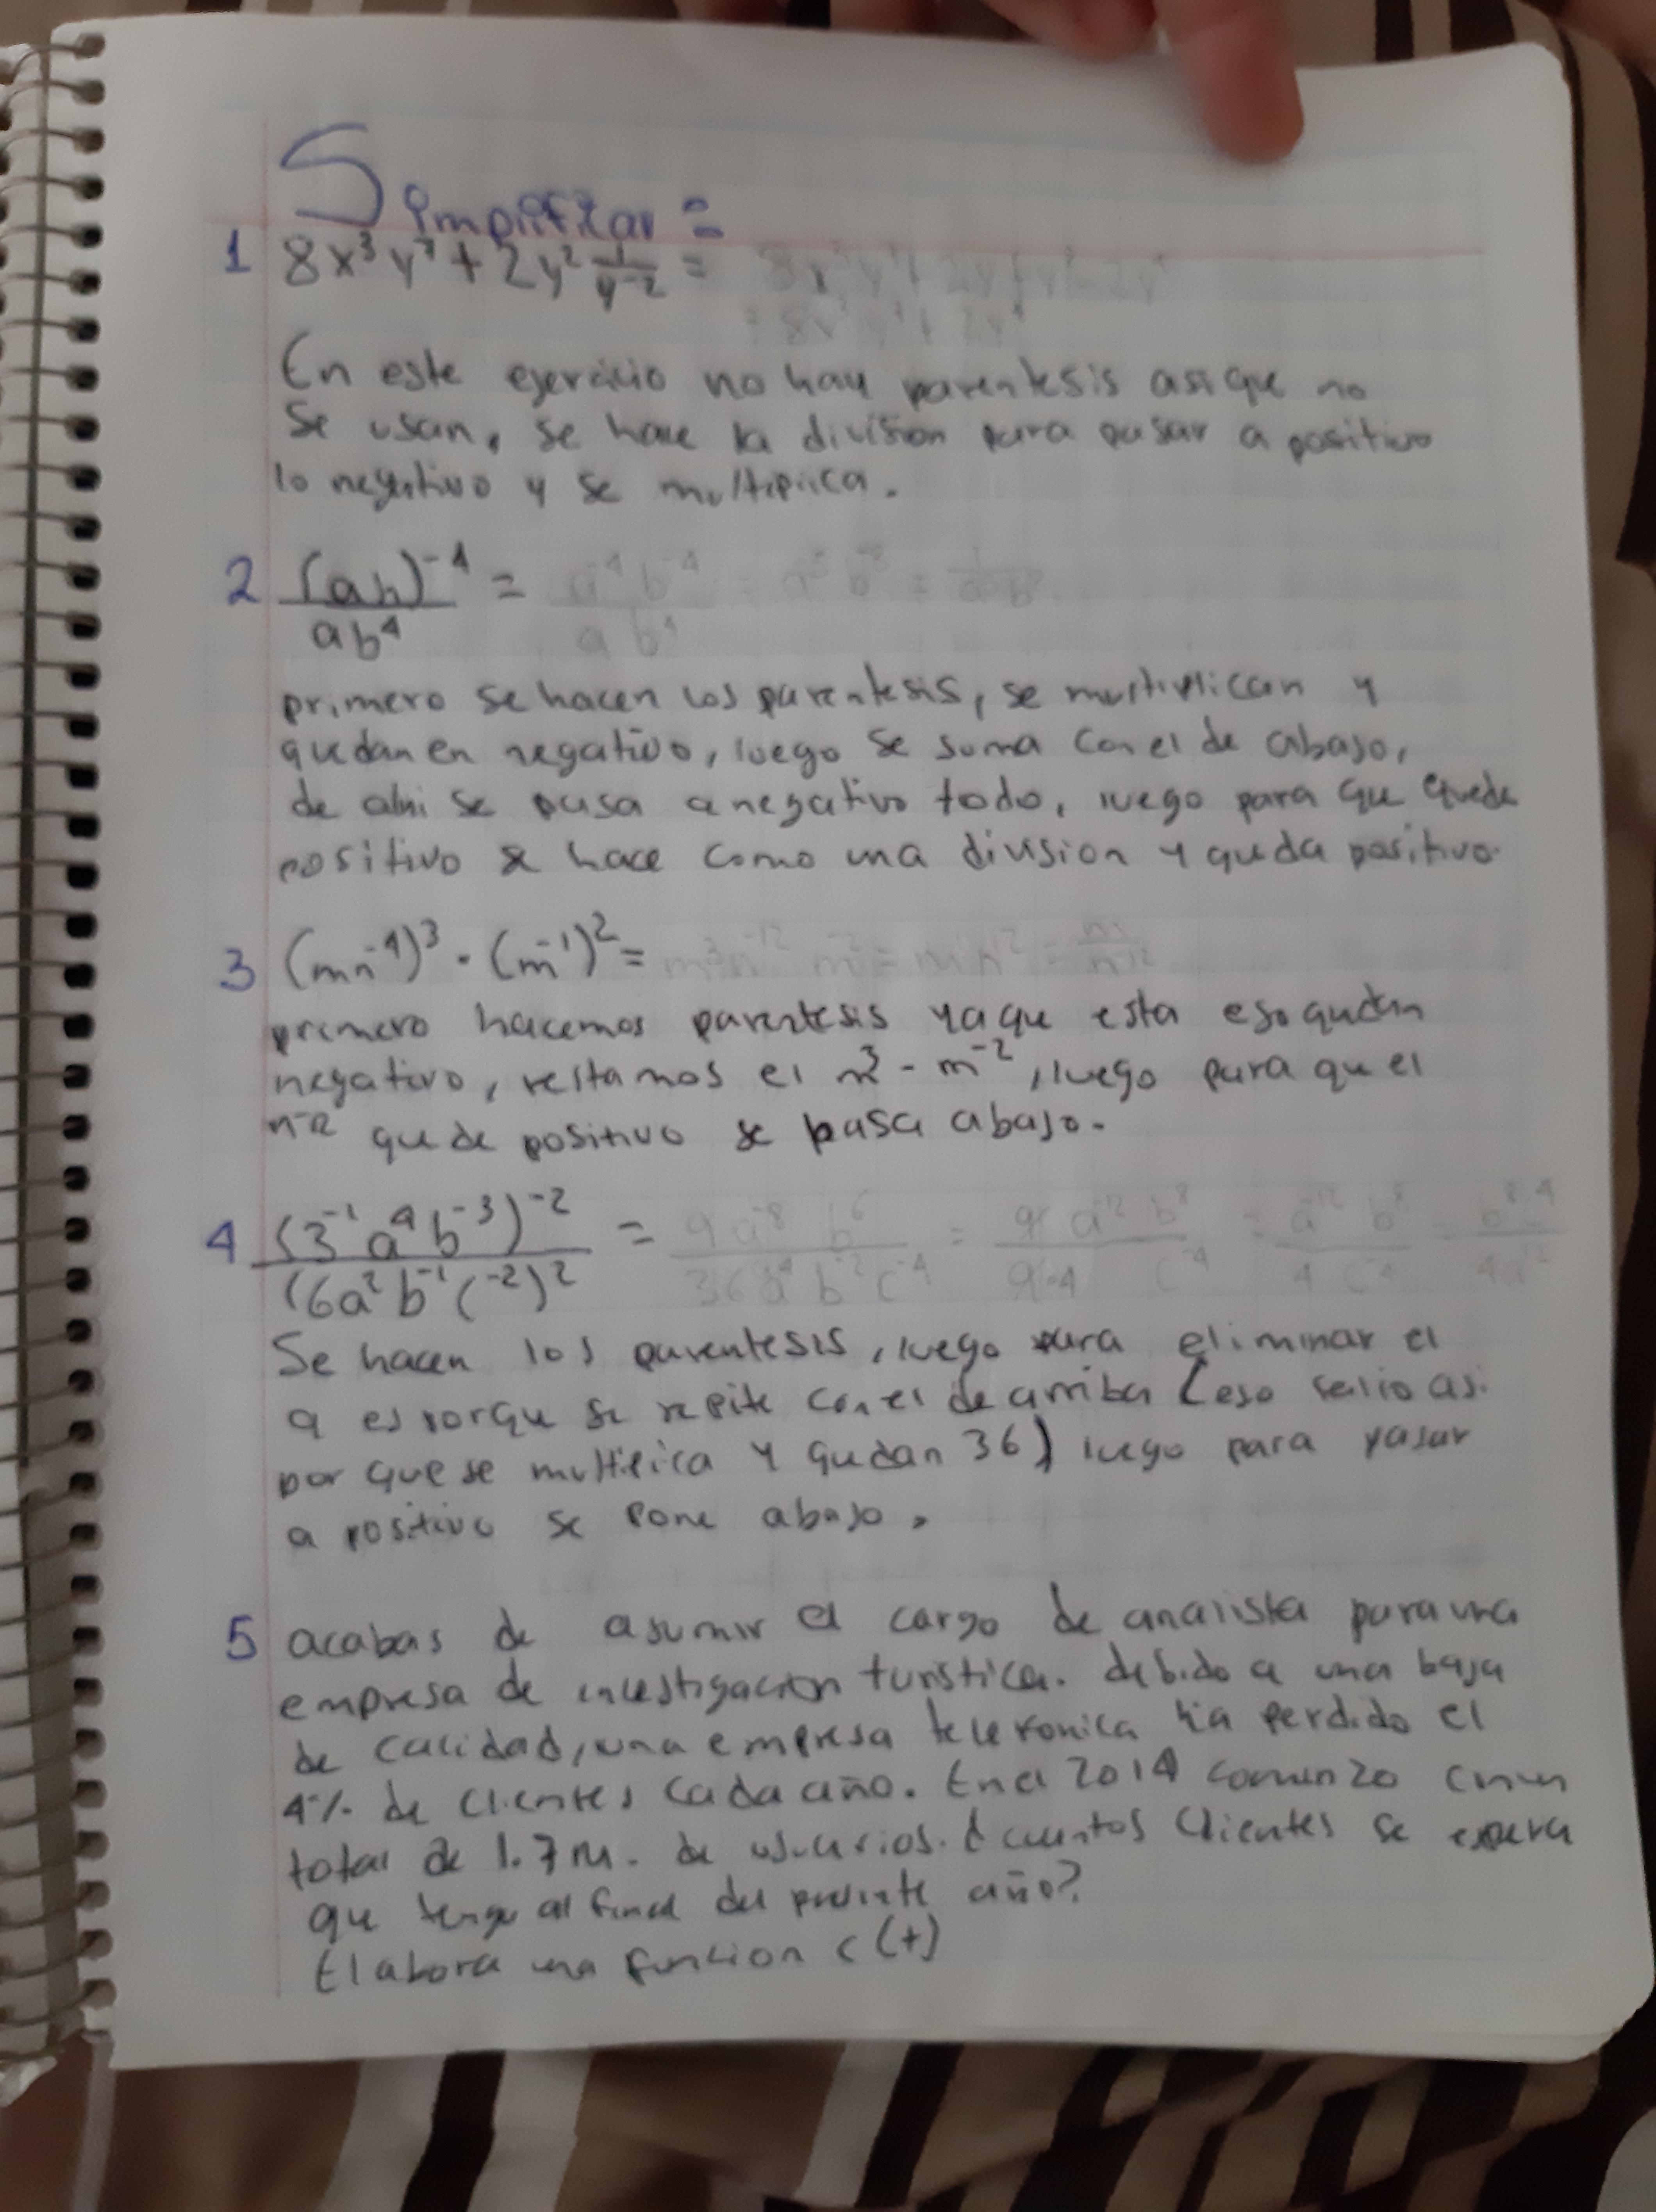 Simplificar =
1 8x³y⁷ + 2y² 1/y⁻² = 8x³y⁷ + 2y² y² = 2y⁴
= 8x³y⁷ + 2y⁴
En este ejercicio no hay parentesis asi que no
se usan, se hace la division para pasar a positivo
lo negativo y se multiplica.
2 (ab)⁻⁴ / ab⁴ = a⁻⁴b⁻⁴ / ab⁴ = a⁻⁵b⁻⁸ = 1 / a⁵b⁸
primero se hacen los parentesis, se multiplican y
quedan en negativo, luego se suma con el de abajo,
de ahi se pasa a negativo todo, luego para que quede
positivo se hace como una division y queda positivo.
3 (mn⁻⁴)³ · (m⁻¹)² = m³n⁻¹² m⁻² = mn⁻¹² = m / n¹²
primero hacemos parentesis ya que esta eso qudan
negativo, restamos el m³ - m⁻², luego para que el
n⁻¹² quede positivo se pasa abajo.
4 (3⁻¹a⁴b⁻³)⁻² / (6a²b⁻¹c⁻²)² = 9a⁻⁸b⁶ / 36a⁴b⁻²c⁻⁴ = 9a⁻¹²b⁸ / 9·4 c⁻⁴ = a⁻¹²b⁸ / 4c⁻⁴ = b⁸c⁴ / 4a¹²
Se hacen los parentesis, luego para eliminar el
9 es porque se repite con el de arriba (eso salio asi
por que se multiplica y qudan 36) luego para pasar
a positivo se pone abajo.
5 acabas de asumir el cargo de analista para una
empresa de investigacion turistica. debido a una baja
de calidad, una empresa telefonica ha perdido el
4% de clientes cada año. En el 2014 comenzo con un
total de 1.7 m. de usuarios. ¿cuantos clientes se espera
que tenga al final del presente año?
Elabora una funcion c(t)